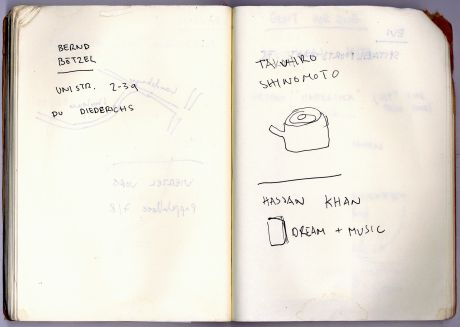 BERND
BÖTZEL
UNI STR. 2-3a
DU DIEDERICHS
TAKAHIRO
SHINOMOTO
HASSAN KHAN
DREAM + MUSIC